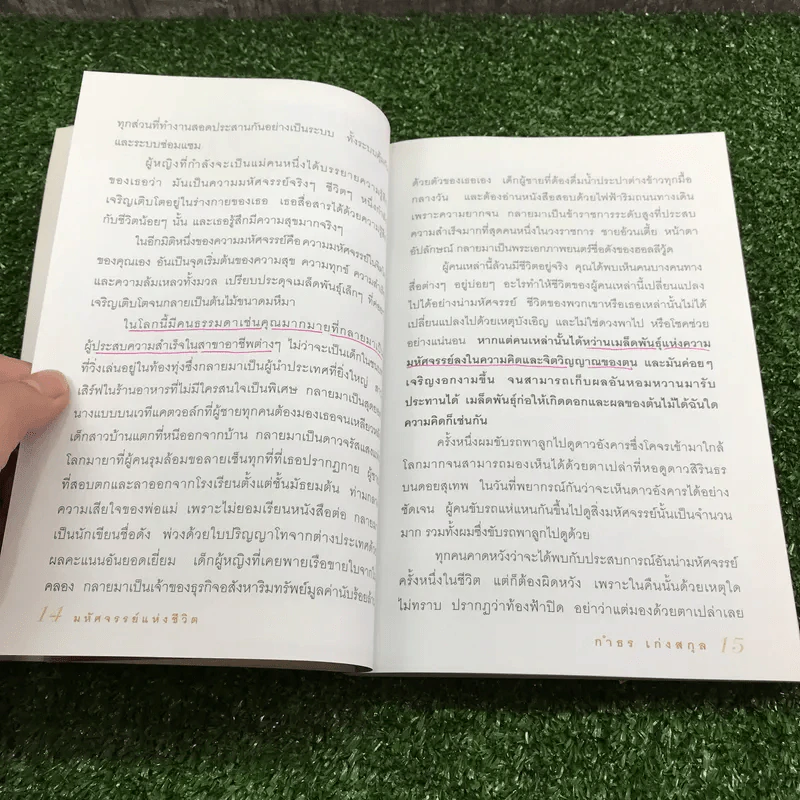 ทุกส่วนที่ทำงานสอดประสานกันอย่างเป็นระบบ ทั้งระบบ
และระบบซ่อมแซม
ผู้หญิงที่กำลังจะเป็นแม่คนหนึ่งได้บรรยายความรู้สึก
ของเธอว่า มันเป็นความมหัศจรรย์จริงๆ ชีวิตๆ หนึ่งกำลัง
เจริญเติบโตอยู่ในร่างกายของเธอ เธอสื่อสารได้ด้วยความรู้สึก
กับชีวิตน้อยๆ นั้น และเธอรู้สึกมีความสุขมากจริงๆ
ในอีกมิติหนึ่งของความมหัศจรรย์คือ ความมหัศจรรย์ใน
ของคุณเอง อันเป็นจุดเริ่มต้นของความสุข ความทุกข์ ความสำเร็จ
และความล้มเหลวทั้งมวล เปรียบประดุจเมล็ดพันธุ์เล็กๆ ที่ค่อยๆ
เจริญเติบโตจนกลายเป็นต้นไม้ขนาดมหึมา
ในโลกนี้มีคนธรรมดาเช่นคุณมากมายที่กลายมาเป็น
ผู้ประสบความสำเร็จในสาขาอาชีพต่างๆ ไม่ว่าจะเป็นเด็กในชนบท
ที่วิ่งเล่นอยู่ในท้องทุ่งซึ่งกลายมาเป็นผู้นำประเทศที่ยิ่งใหญ่ สาว
เสิร์ฟในร้านอาหารที่ไม่มีใครสนใจเป็นพิเศษ กลายมาเป็นสุดยอด
นางแบบบนเวทีแคตวอล์กที่ผู้ชายทุกคนต้องมองเธอจนเหลียวหลัง
เด็กสาวบ้านแตกที่หนีออกจากบ้าน กลายมาเป็นดาวจรัสแสง
โลกมายาที่ผู้คนรุมล้อมขอลายเซ็นทุกที่ที่เธอปรากฏกาย ผู้ชาย
ที่สอบตกและลาออกจากโรงเรียนตั้งแต่ชั้นมัธยมต้น ท่ามกลาง
ความเสียใจของพ่อแม่ เพราะไม่ยอมเรียนหนังสือต่อ กลายมา
เป็นนักเขียนชื่อดัง พ่วงด้วยใบปริญญาโทจากต่างประเทศด้วย
ผลคะแนนอันยอดเยี่ยม เด็กผู้หญิงที่เคยพายเรือขายใบจากใน
คลอง กลายมาเป็นเจ้าของธุรกิจอสังหาริมทรัพย์มูลค่านับร้อยล้าน
14 มหัศจรรย์แห่งชีวิต
ด้วยตัวของเธอเอง เด็กผู้ชายที่ต้องดื่มน้ำประปาต่างข้าวทุกมื้อ
กลางวัน และต้องอ่านหนังสือสอบด้วยไฟฟ้าริมถนนทางเดิน
เพราะความยากจน กลายมาเป็นข้าราชการระดับสูงที่ประสบ
ความสำเร็จมากที่สุดคนหนึ่งในวงราชการ ชายอ้วนเตี้ย หน้าตา
อัปลักษณ์ กลายมาเป็นพระเอกภาพยนตร์ชื่อดังของฮอลลีวู้ด
ผู้คนเหล่านี้ล้วนมีชีวิตอยู่จริง คุณได้พบเห็นคนบางคนทาง
สื่อต่างๆ อยู่บ่อยๆ อะไรทำให้ชีวิตของผู้คนเหล่านี้เปลี่ยนแปลง
ไปได้อย่างน่ามหัศจรรย์ ชีวิตของพวกเขาหรือเธอเหล่านั้นไม่ได้
เปลี่ยนแปลงไปด้วยเหตุบังเอิญ และไม่ใช่ดวงพาไป หรือโชคช่วย
อย่างแน่นอน หากแต่คนเหล่านั้นได้หว่านเมล็ดพันธุ์แห่งความ
มหัศจรรย์ลงในความคิดและจิตวิญญาณของตน และมันค่อยๆ
เจริญงอกงามขึ้น จนสามารถเก็บผลอันหอมหวานมารับ
ประทานได้ เมล็ดพันธุ์ก่อให้เกิดดอกและผลของต้นไม้ได้ฉันใด
ความคิดก็เช่นกัน
ครั้งหนึ่งผมขับรถพาลูกไปดูดาวอังคารซึ่งโคจรเข้ามาใกล้
โลกมากจนสามารถมองเห็นได้ด้วยตาเปล่าที่หอดูดาวสิรินธร
บนดอยสุเทพ ในวันที่พยากรณ์กันว่าจะเห็นดาวอังคารได้อย่าง
ชัดเจน ผู้คนขับรถแห่แหนกันขึ้นไปดูสิ่งมหัศจรรย์นั้นเป็นจำนวน
มาก รวมทั้งผมซึ่งขับรถพาลูกไปดูด้วย
ทุกคนคาดหวังว่าจะได้พบกับประสบการณ์อันน่ามหัศจรรย์
ครั้งหนึ่งในชีวิต แต่ก็ต้องผิดหวัง เพราะในคืนนั้นด้วยเหตุใด
ไม่ทราบ ปรากฏว่าท้องฟ้าปิด อย่าว่าแต่มองด้วยตาเปล่าเลย
กำธร เก่งสกุล 15